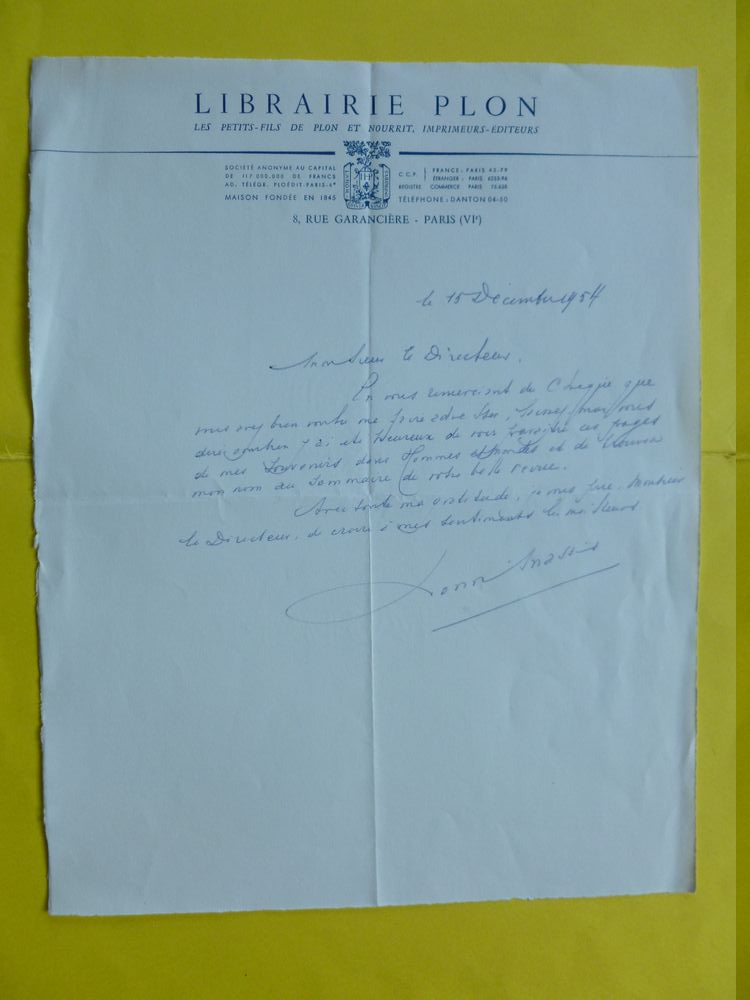 LIBRAIRIE PLON
LES PETITS-FILS DE PLON ET NOURRIT, IMPRIMEURS-EDITEURS
SOCIÉTÉ ANONYME AU CAPITAL
DE 117.000.000 DE FRANCS
AD. TÉLÉGR. PLOÉDIT-PARIS-6e
MAISON FONDÉE EN 1845
C.C.P. FRANCE : PARIS 43-79
ÉTRANGER : PARIS 6255-96
REGISTRE COMMERCE PARIS 75.638
TÉLÉPHONE : DANTON 04-50
8, RUE GARANCIÈRE - PARIS (VIe)
le 15 Décembre 1954
Monsieur le Directeur,
En vous remerciant du chèque que
vous avez bien voulu me faire adresser, laissez-moi vous
dire combien j'ai été heureux de voir paraître ces pages
de mes Souvenirs dans Hommes et Mondes et de
mon nom au Sommaire de votre belle revue.
Avec toute ma gratitude, je vous prie, Monsieur
le Directeur, de croire à mes sentiments les meilleurs
Henri Massis